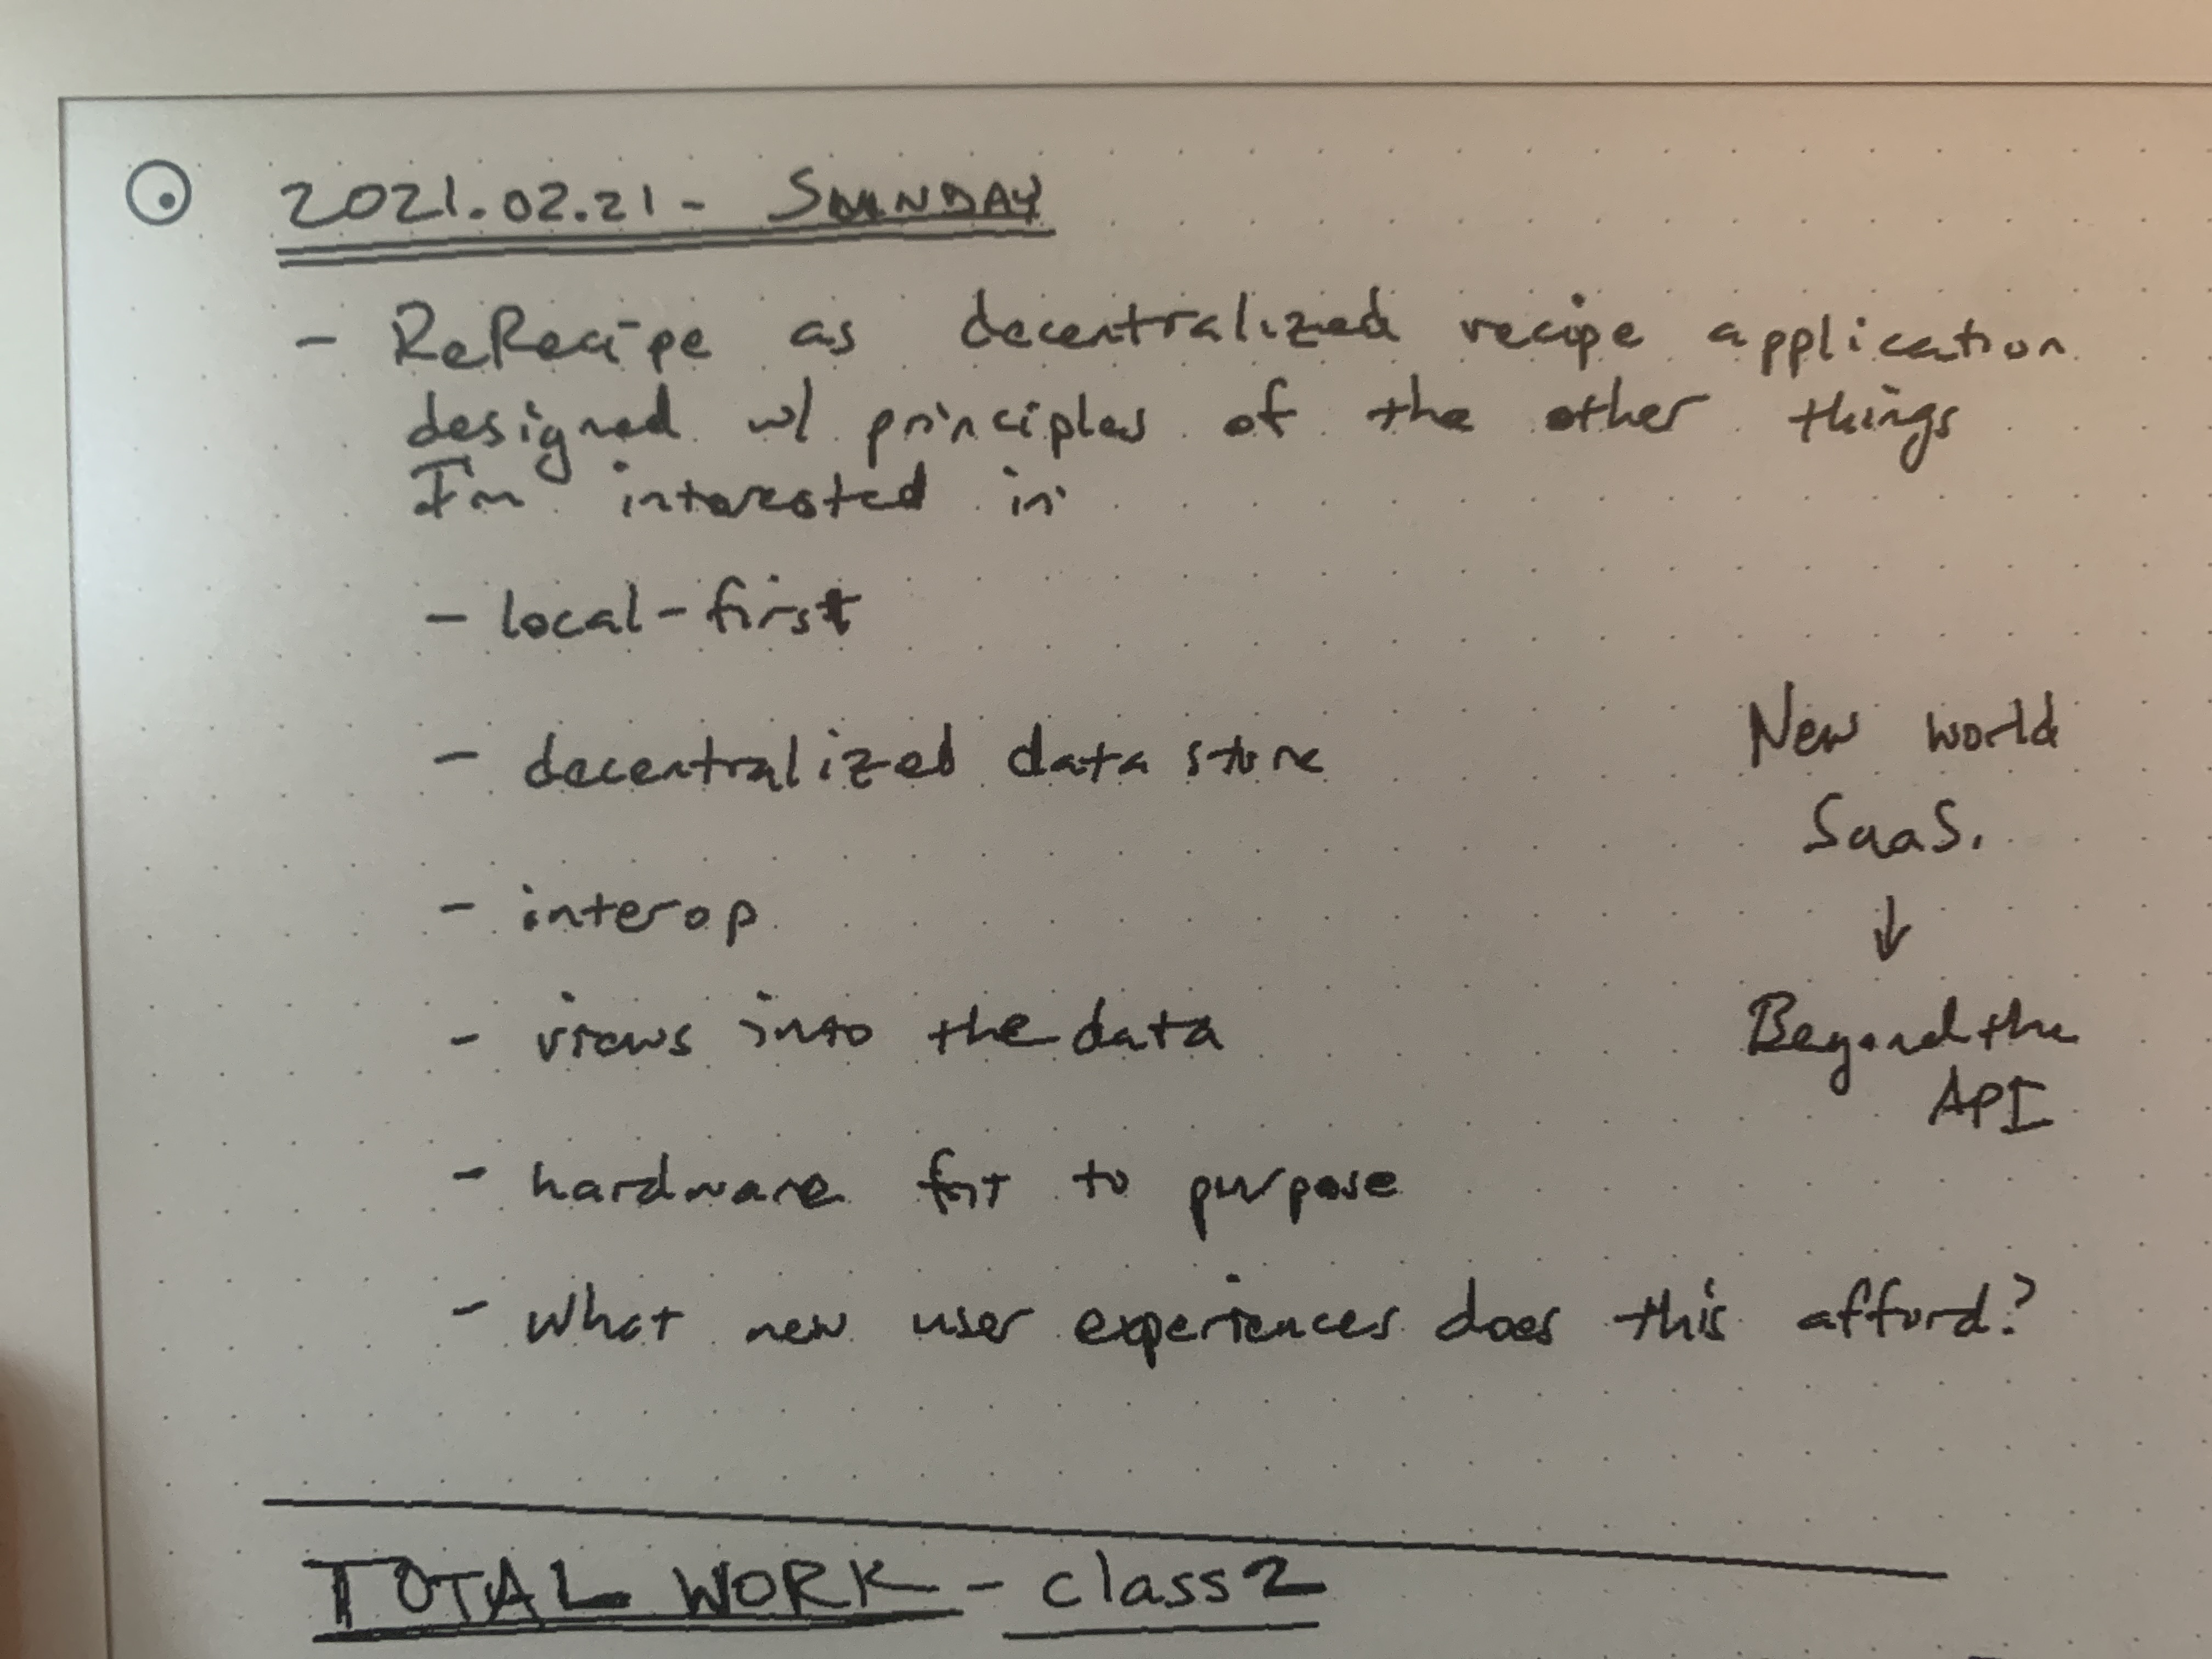 2021.02.21 - SUNDAY
- ReRecipe as decentralized recipe application
designed w/ principles of the other things
I'm interested in
- local-first
- decentralized data store
- interop
- views into the data
- hardware fit to purpose
- what new user experiences does this afford?
New world
SaaS.
↓
Beyond the
API
TOTAL WORK - class 2